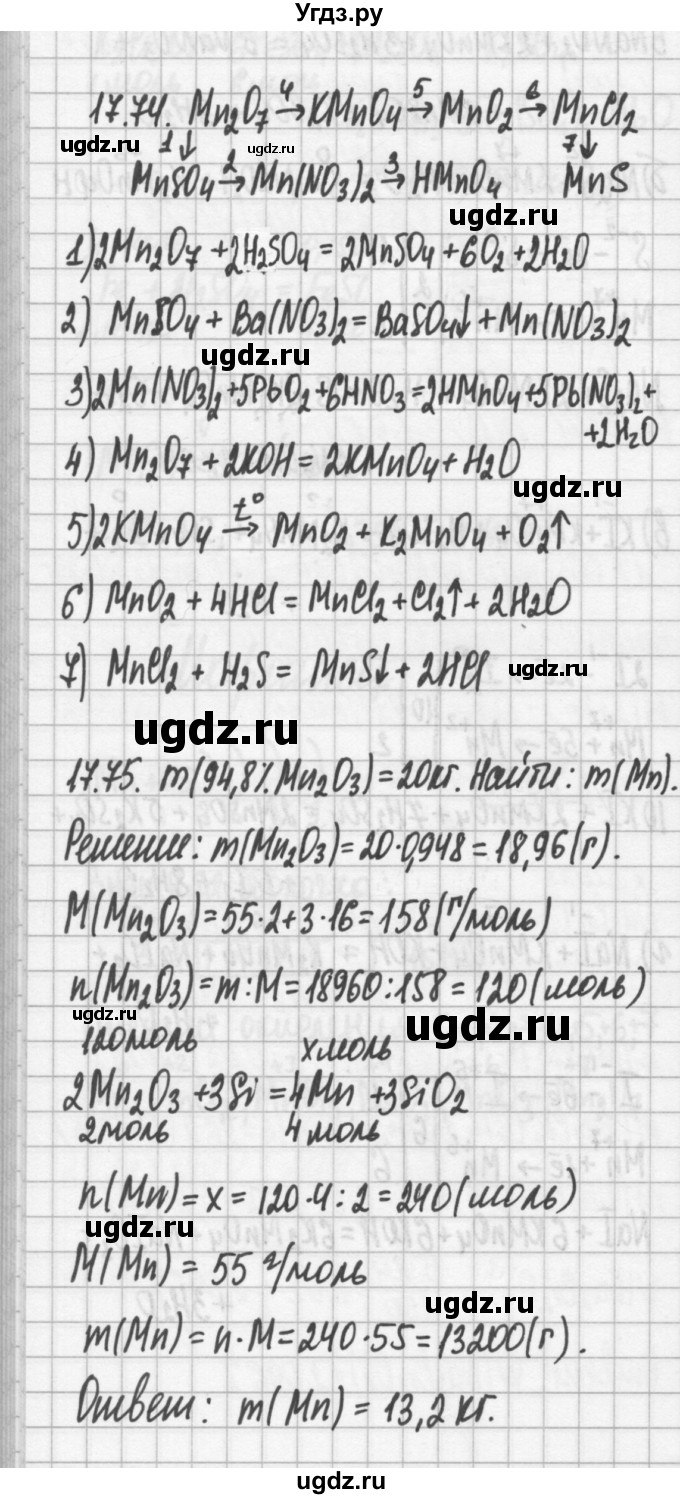 Угдз.ру
17.74. Mn₂O₇ →⁴ KMnO₄ →⁵ MnO₂ →⁶ MnCl₂
ugdz.ru 1↓ ugdz.ru 7↓
MnSO₄ →² Mn(NO₃)₂ →³ HMnO₄ MnS
ugdz.ru
1) 2Mn₂O₇ + 2H₂SO₄ = 2MnSO₄ + 6O₂ + 2H₂O
2) MnSO₄ + Ba(NO₃)₂ = BaSO₄↓ + Mn(NO₃)₂
ugdz.ru
3) 2Mn(NO₃)₂ + 5PbO₂ + 6HNO₃ = 2HMnO₄ + 5Pb(NO₃)₂ +
+ 2H₂O
4) Mn₂O₇ + 2KOH = 2KMnO₄ + H₂O
ugdz.ru
5) 2KMnO₄ →t° MnO₂ + K₂MnO₄ + O₂↑
6) MnO₂ + 4HCl = MnCl₂ + Cl₂↑ + 2H₂O
7) MnCl₂ + H₂S = MnS↓ + 2HCl ugdz.ru
ugdz.ru
17.75. m(94,8% Mn₂O₃) = 20кг. Найти: m(Mn).
Решение: m(Mn₂O₃) = 20·0,948 = 18,96(г).
M(Mn₂O₃) = 55·2+3·16 = 158(г/моль)
n(Mn₂O₃) = m:M = 18960:158 = 120(моль)
ugdz.ru ugdz.ru
120моль xмоль
2Mn₂O₃ + 3Si = 4Mn + 3SiO₂
2моль 4моль
n(Mn) = x = 120·4:2 = 240(моль)
ugdz.ru
M(Mn) = 55 г/моль
ugdz.ru
m(Mn) = n·M = 240·55 = 13200(г).
Ответ: m(Mn) = 13,2 кг.
ugdz.ru